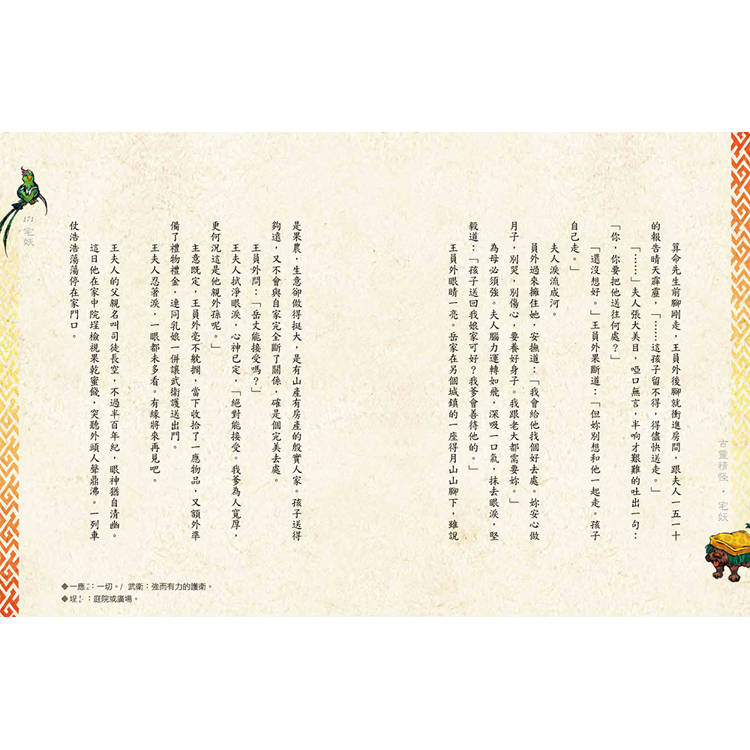 算命先生前腳剛走，王員外後腳就衝進房間，跟夫人一五一十
的報告晴天霹靂，「……這孩子留不得，得儘快送走。」
「……」夫人張大美目，啞口無言，半响才艱難的吐出一句：
「你，你要把他送往何處？」
「還沒想好。」王員外果斷道：「但妳別想和他一起走。孩子
自己走。」
夫人淚流成河。
員外過來擁住她，安撫道：「我會給他找個好去處。妳安心做
月子，別哭，別傷心，要養好身子。我跟老大都需要妳。」
為母必須強。夫人腦力運轉如飛，深吸一口氣，抹去眼淚，堅
毅道：「孩子送回我娘家可好？我爹會善待他的。」
王員外眼睛一亮。岳家在另個城鎮的一座得月山山腳下，雖說
古靈精怪・宅妖
是果農，生意卻做得挺大，是有山產有房產的殷實人家。孩子送得
夠遠，又不會與自家完全斷了關係，確是個完美去處。
王員外問：「岳丈能接受嗎？」
王夫人拭淨眼淚，心神已定，「絕對能接受。我爹為人寬厚，
更何況這是他親外孫呢。」
主意既定，王員外毫不躭擱，當下收拾了一應物品，又額外準
備了禮物禮金，連同乳娘一併讓武衛護送出門。
王夫人忍著淚，一眼都未多看。有緣將來再見吧。
王夫人的父親名叫司徒長空，不過半百年紀，眼神猶自清幽。
這日他在家中院埕檢視果乾蜜餞，突聽外頭人聲鼎沸。一列車
仗浩浩蕩蕩停在家門口。
宅妖
◆一應：一切。/ 武衛：強而有力的護衛。
◆埕：庭院或廣場。